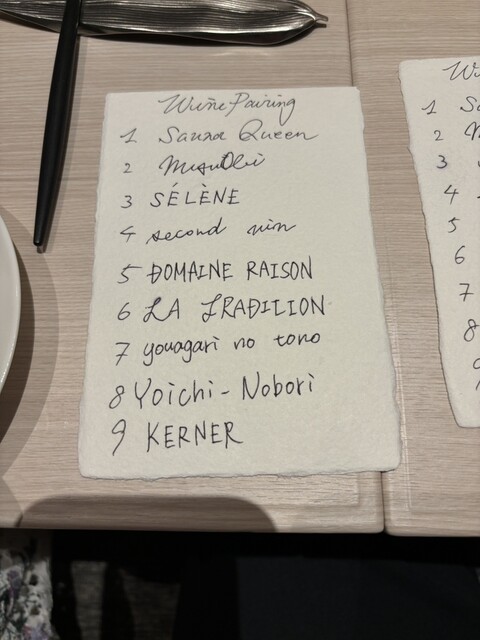 Wine Pairing
1 Sauna Queen
2
3 SÉLÈNE
4 second vin
5 DOMAINE RAISON
6 LA TRADITION
7 youagari no tono
8 Yoichi-Nobori
9 KERNER
Wi
1 Sa
2
3
4
5
6
7
8
9